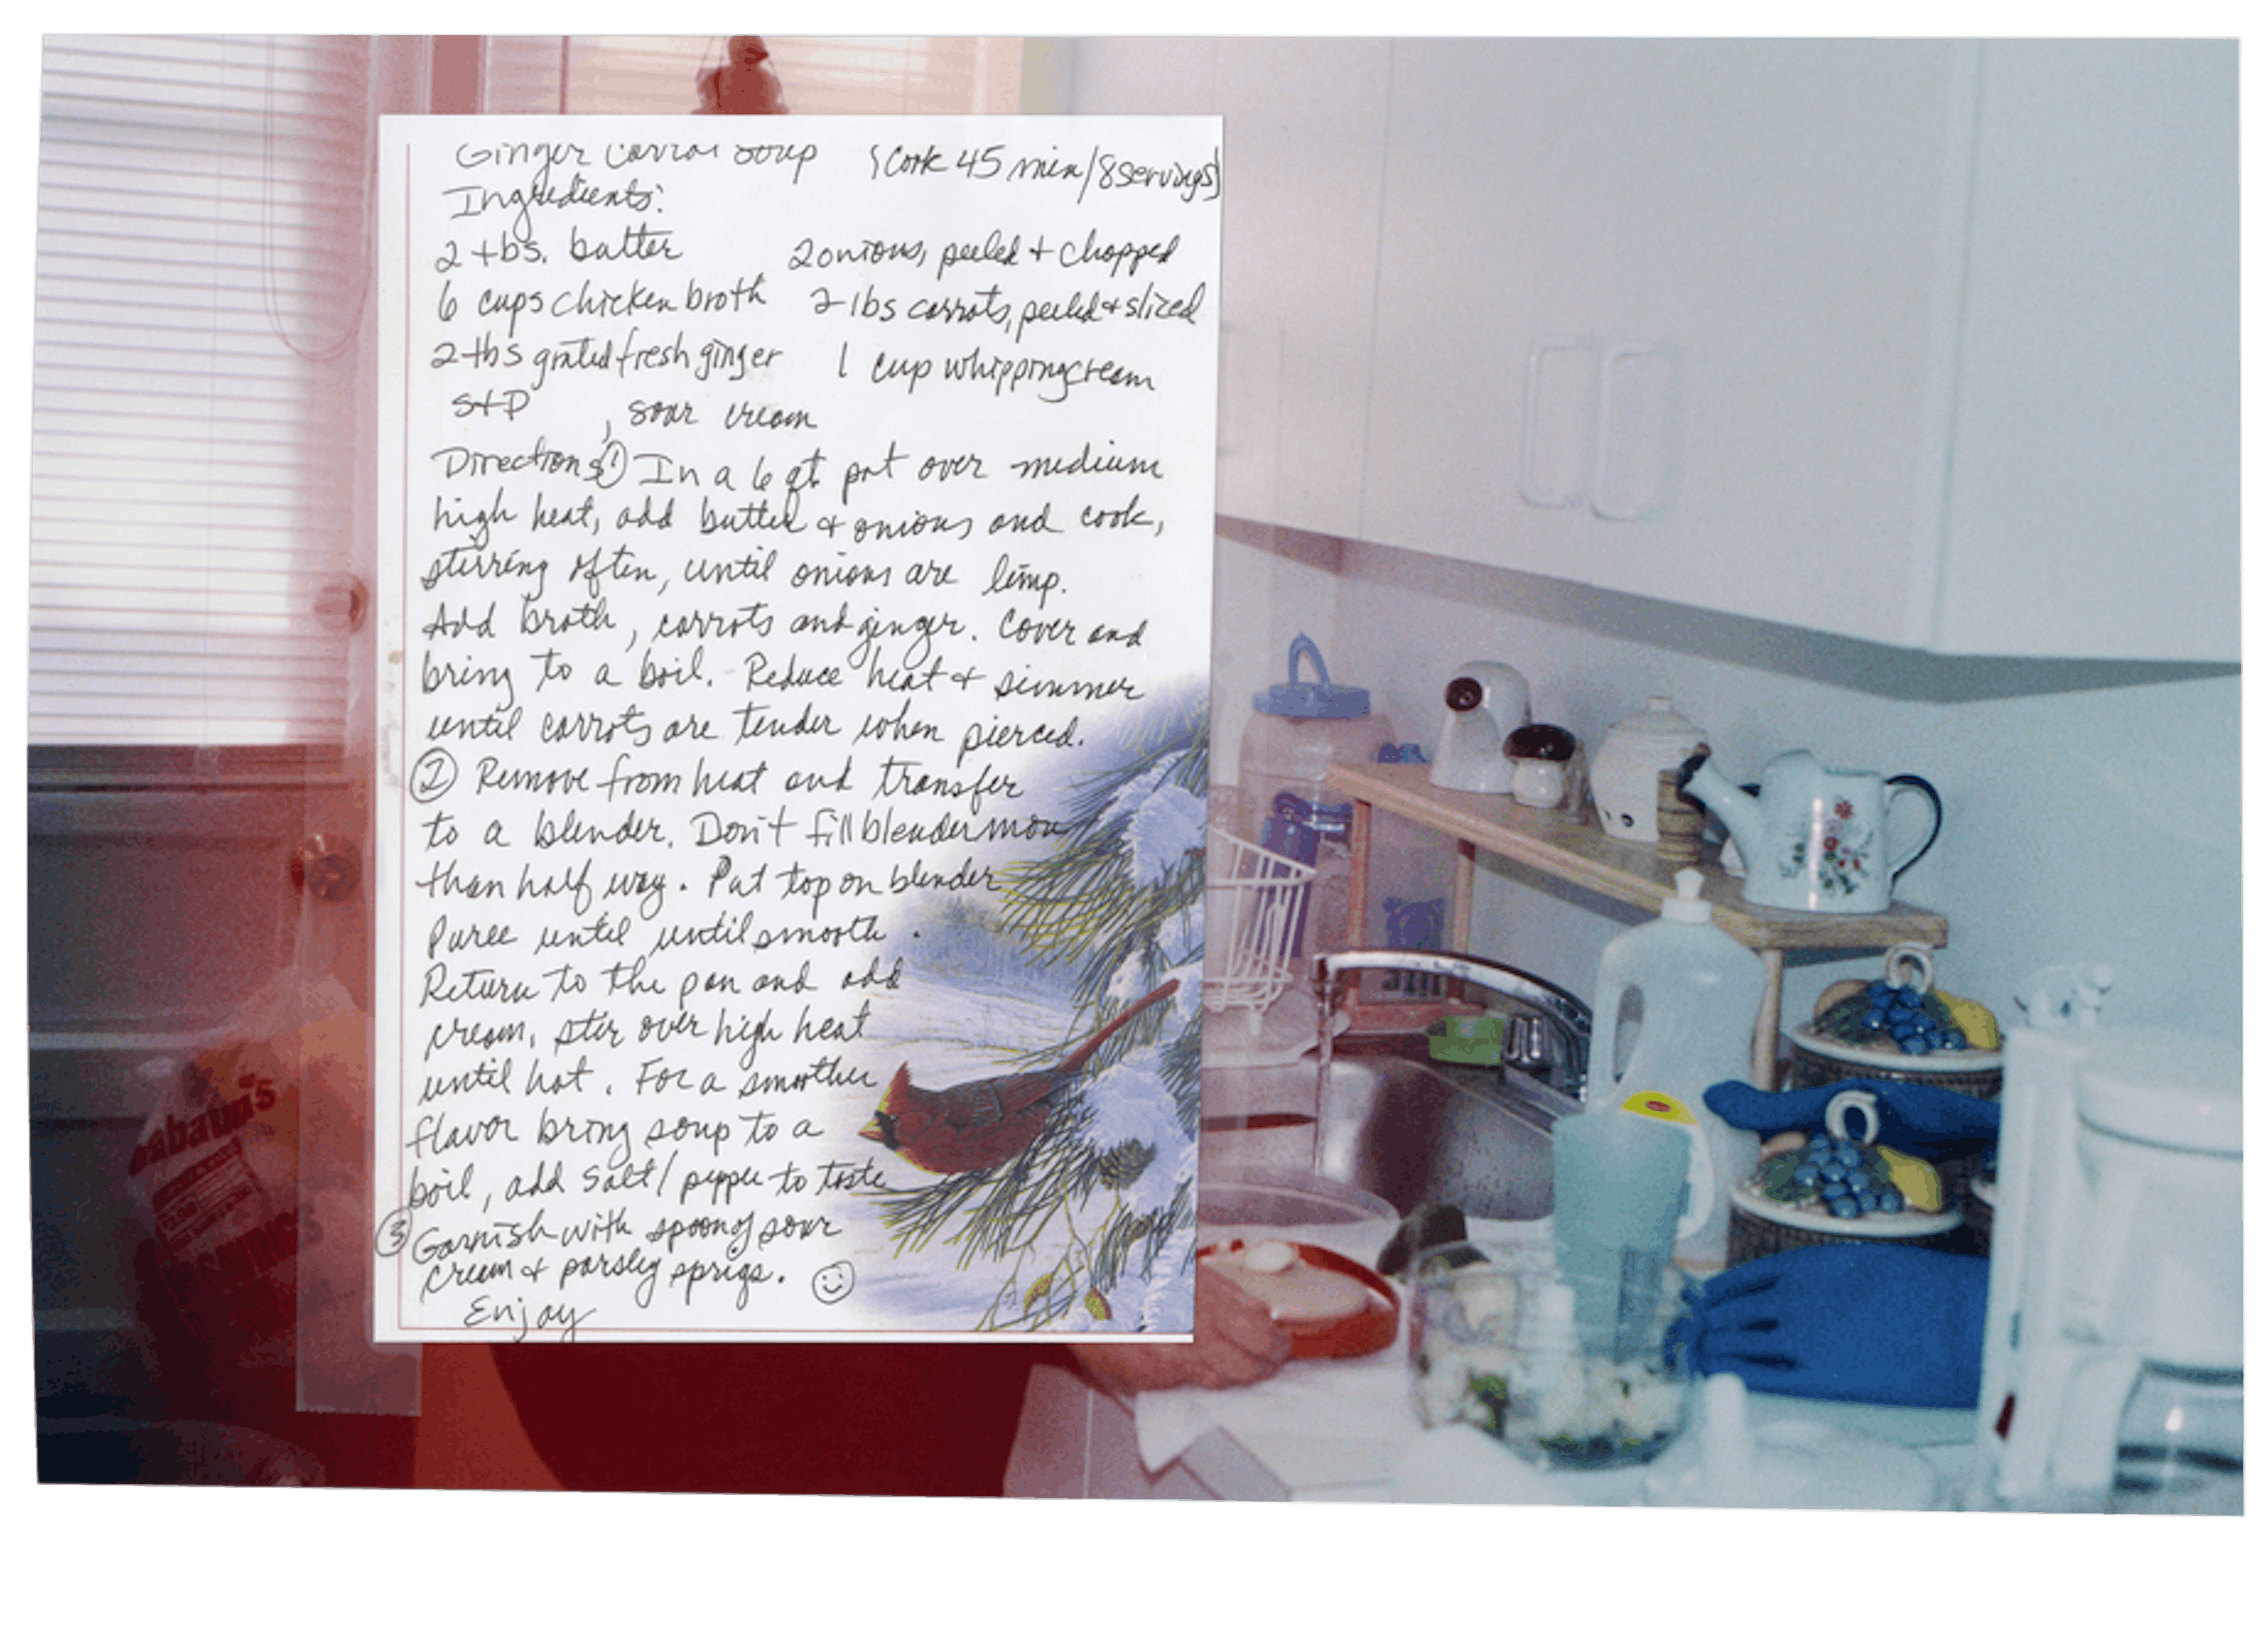 Ginger Carrot Soup (Cook 45 min/8servings)
Ingredients:
2 tbs. butter 2 onions, peeled + chopped
6 cups chicken broth 2 lbs carrots, peeled + sliced
2 tbs grated fresh ginger 1 cup whipping cream
S+P , sour cream
Directions ① In a 6 qt pot over medium
high heat, add butter + onions and cook,
stirring often, until onions are limp.
Add broth, carrots and ginger. Cover and
bring to a boil. Reduce heat + simmer
until carrots are tender when pierced.
② Remove from heat and transfer
to a blender. Don't fill blender more
than half way. Put top on blender
Puree until until smooth.
Return to the pan and add
cream, stir over high heat
until hot. For a smoother
flavor bring soup to a
boil, add salt/pepper to taste
③ Garnish with spoon of sour
cream + parsley sprigs. ☺
Enjoy